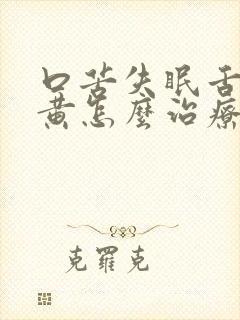 口苦失眠舌
黄怎麼治療
克羅克